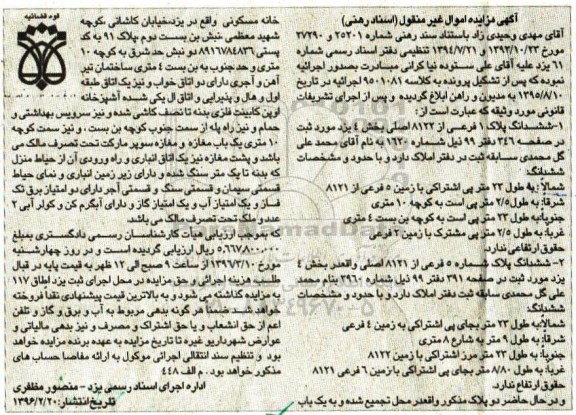 آگهی مزایده اموال غیر منقول (اسناد رهنی)
آقای مهدی وحیدی زاد باستناد سند رهنی شماره ۲۵۲۰۱ و ۲۷۲۹۰
مورخ ۱۳۹۳/۱۰/۲۳ و ۱۳۹۴/۷/۲۱ تنظیمی دفتر اسناد رسمی شماره
۶۱ یزد علیه آقای علی ستوده نیا کرانی مبادرت بصدور اجرائیه
نموده که پس از تشکیل پرونده به کلاسه ۹۵۰۱۰۸۶ اجرائیه در تاریخ
۱۳۹۵/۸/۱۰ به مدیون و راهن ابلاغ گردیده و پس از اجرای تشریفات
قانونی مورد وثیقه که عبارت است از :
۱-ششدانگ پلاک ۱ فرعی از ۸۱۲۲ اصلی بخش ۴ یزد مورد ثبت
در صفحه ۳۴۶ دفتر ۹۹ ذیل شماره ۱۶۲۰ به نام آقای محمد علی
گل محمدی سابقه ثبت در دفتر املاک دارد و با حدود و مشخصات
ششدانگ:
شمالاً : به طول ۲۳ متر پی اشتراکی با زمین ۵ فرعی از ۸۱۲۱
شرقا: به طول ۲/۵ متر پی است به کوچه ۱۰ متری
جنوبا:به طول ۲۳ متر پی است به کوچه بن بست ۴ متری
غربا: به طول ۲/۵ متر پی مشترک با زمین ۲ فرعی
حقوق ارتفاعی ندارد.
۲- ششدانگ پلاک شماره ۵ فرعی از ۸۱۲۱ اصلی واقعدر بخش ۴
یزد مورد ثبت در صفحه ۳۹۱ دفتر ۹۹ ذیل شماره ۳۹۶۰ بنام محمد
علی گل محمدی سابقه ثبت دفتر املاک دارد و با حدود و مشخصات
ششدانگ
شمالا:به طول ۲۳ متر بجای پی اشتراکی به زمین ۴ فرعی
شرقا: به طول ۹ متر به شارع ۸ متری
جنوبا: به طول ۲۳ متر مرز اشتراکی با زمین ۸۱۲۲
غربا: به طول ۸/۸۰ متر بجای پی اشتراکی با زمین ۶ فرعی ۸۱۲۱
حقوق ارتفاع ندارد.
و در حال حاضر دو پلاک مذکور واقعدر محل تجمیع شده و به یک باب
قوه قضائیه
خانه مسکونی واقع در یزدخیابان کاشانی ،کوچه
شهید معظمی نبش بن بست دوم پلاک ۹۱ به کد
پستی ۸۹۱۶۷۸۴۸۳۶ دو نبش حد شرق به کوچه ۱۰
متری و حد جنوب به بن بست ۴ متری ساختمان تیر
آهن و آجری دارای دو اتاق خواب و نیز یک اتاق طبقه
اول و هال و پذیرایی و اتاق ال یکی شده آشپزخانه
اوپن کابینت فلزی بدنه تا نصف کاشی شده و نیز سرویس بهداشتی و
حمام و نیز راه پله از سمت جنوب کوچه بن بست ، و نیز سمت کوچه
۱۰ متری یک باب مغازه و مغازه سوپر مارکت تحت تصرف مالک می
باشد و پشت مغازه نیز یک اتاق انباری و راه ورودی آن از حیاط منزل
که بدنه تا یک متر سنگ شده و دارای زیر زمین انباری و نمای حیاط
قسمتی سیمان و قسمتی سنگ و قسمتی آجر دارای دو امتیاز برق تک
فاز و یک امتیاز آب و یک امتیاز گاز و دارای آبگرم کن و کولر آبی ۲
عدد و ملک تحت تصرف مالک می باشد.
که بموجب ارزیابی هیأت کارشناسان رسمی دادگستری بمبلغ
۵٫۶۶۷٫۸۰۰٫۰۰۰ ریال ارزیابی گردیده است و در روز چهارشنبه
مورخ ۱۳۹۶/۳/۱۰ از ساعت ۹ صبح الی ۱۲ ظهر به قیمت پایه در قبال
طلب و هزینه اجرائی و حق مزایده در محل اجرای ثبت یزد اطاق ۱۱۷
به مزایده گذاشته می شود و به بالاترین قیمت پیشنهادی نقدا فروخته
خواهد شد. ضمناً هر گونه بدهی مربوط به آب و برق و گاز و تلفن
اعم از حق انشعاب و یا حق اشتراک و مصرف و نیز بدهی مالیاتی و
عوارض شهرداریو غیره تا تاریخ مزایده به عهده برنده مزایده خواهد
بود و تنظیم سند انتقالی اجرائی موکول به ارائه مفاصا حساب های
مذکور خواهد بود . م الف ۴۴۸
اداره اجرای اسناد رسمی یزد - منصور مظفری
تاریخ انتشار: ۱۳۹۶/۲/۲۰